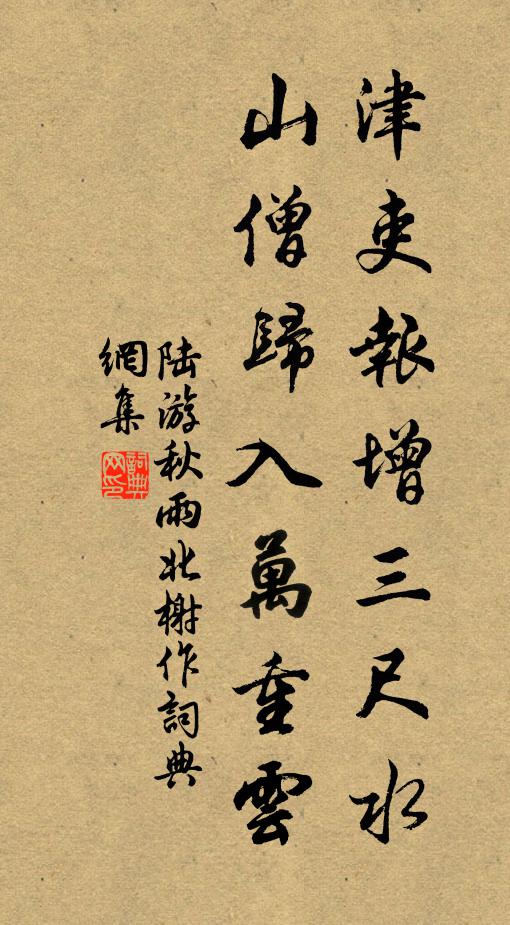 津吏報增三尺水
山僧歸入萬重雲
陸游秋雨北榭作詞典
網集
詞典网印